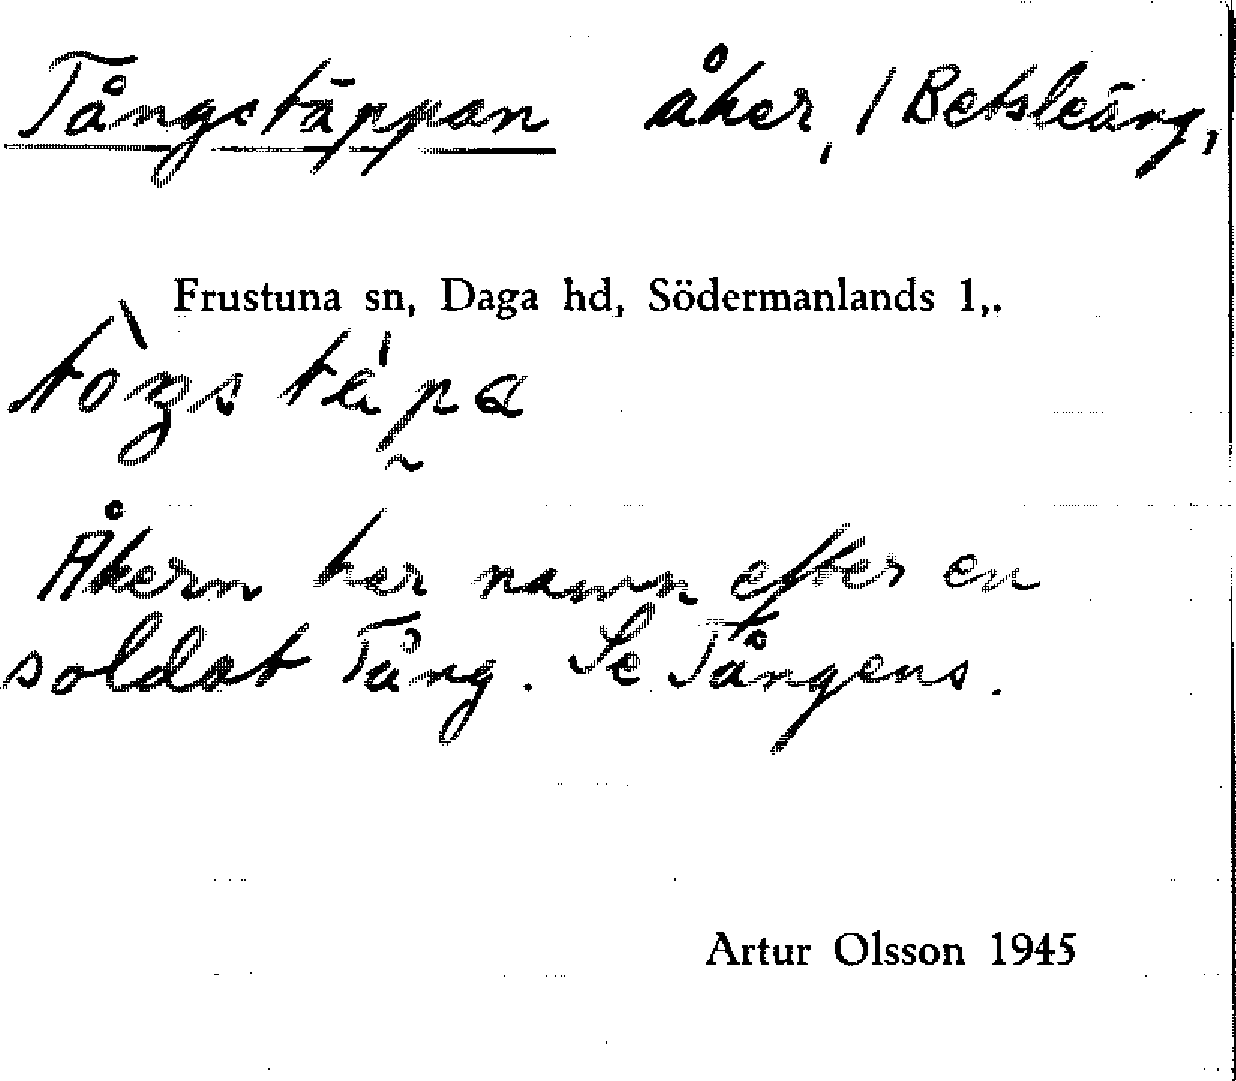 Tångstäppan åker, / Betsleäng,
Frustuna sn, Daga hd, Södermanlands l,.
Åkern har namn efter en
soldat Tång. Se Tångens.
Artur Olsson 1945